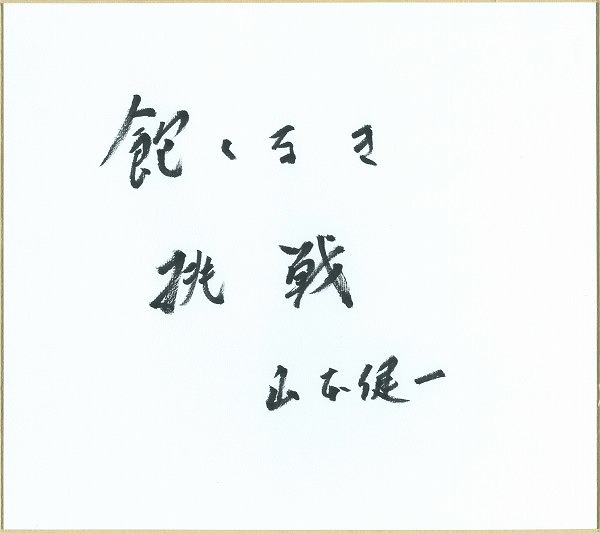 飽くなき
挑戦
山本健一